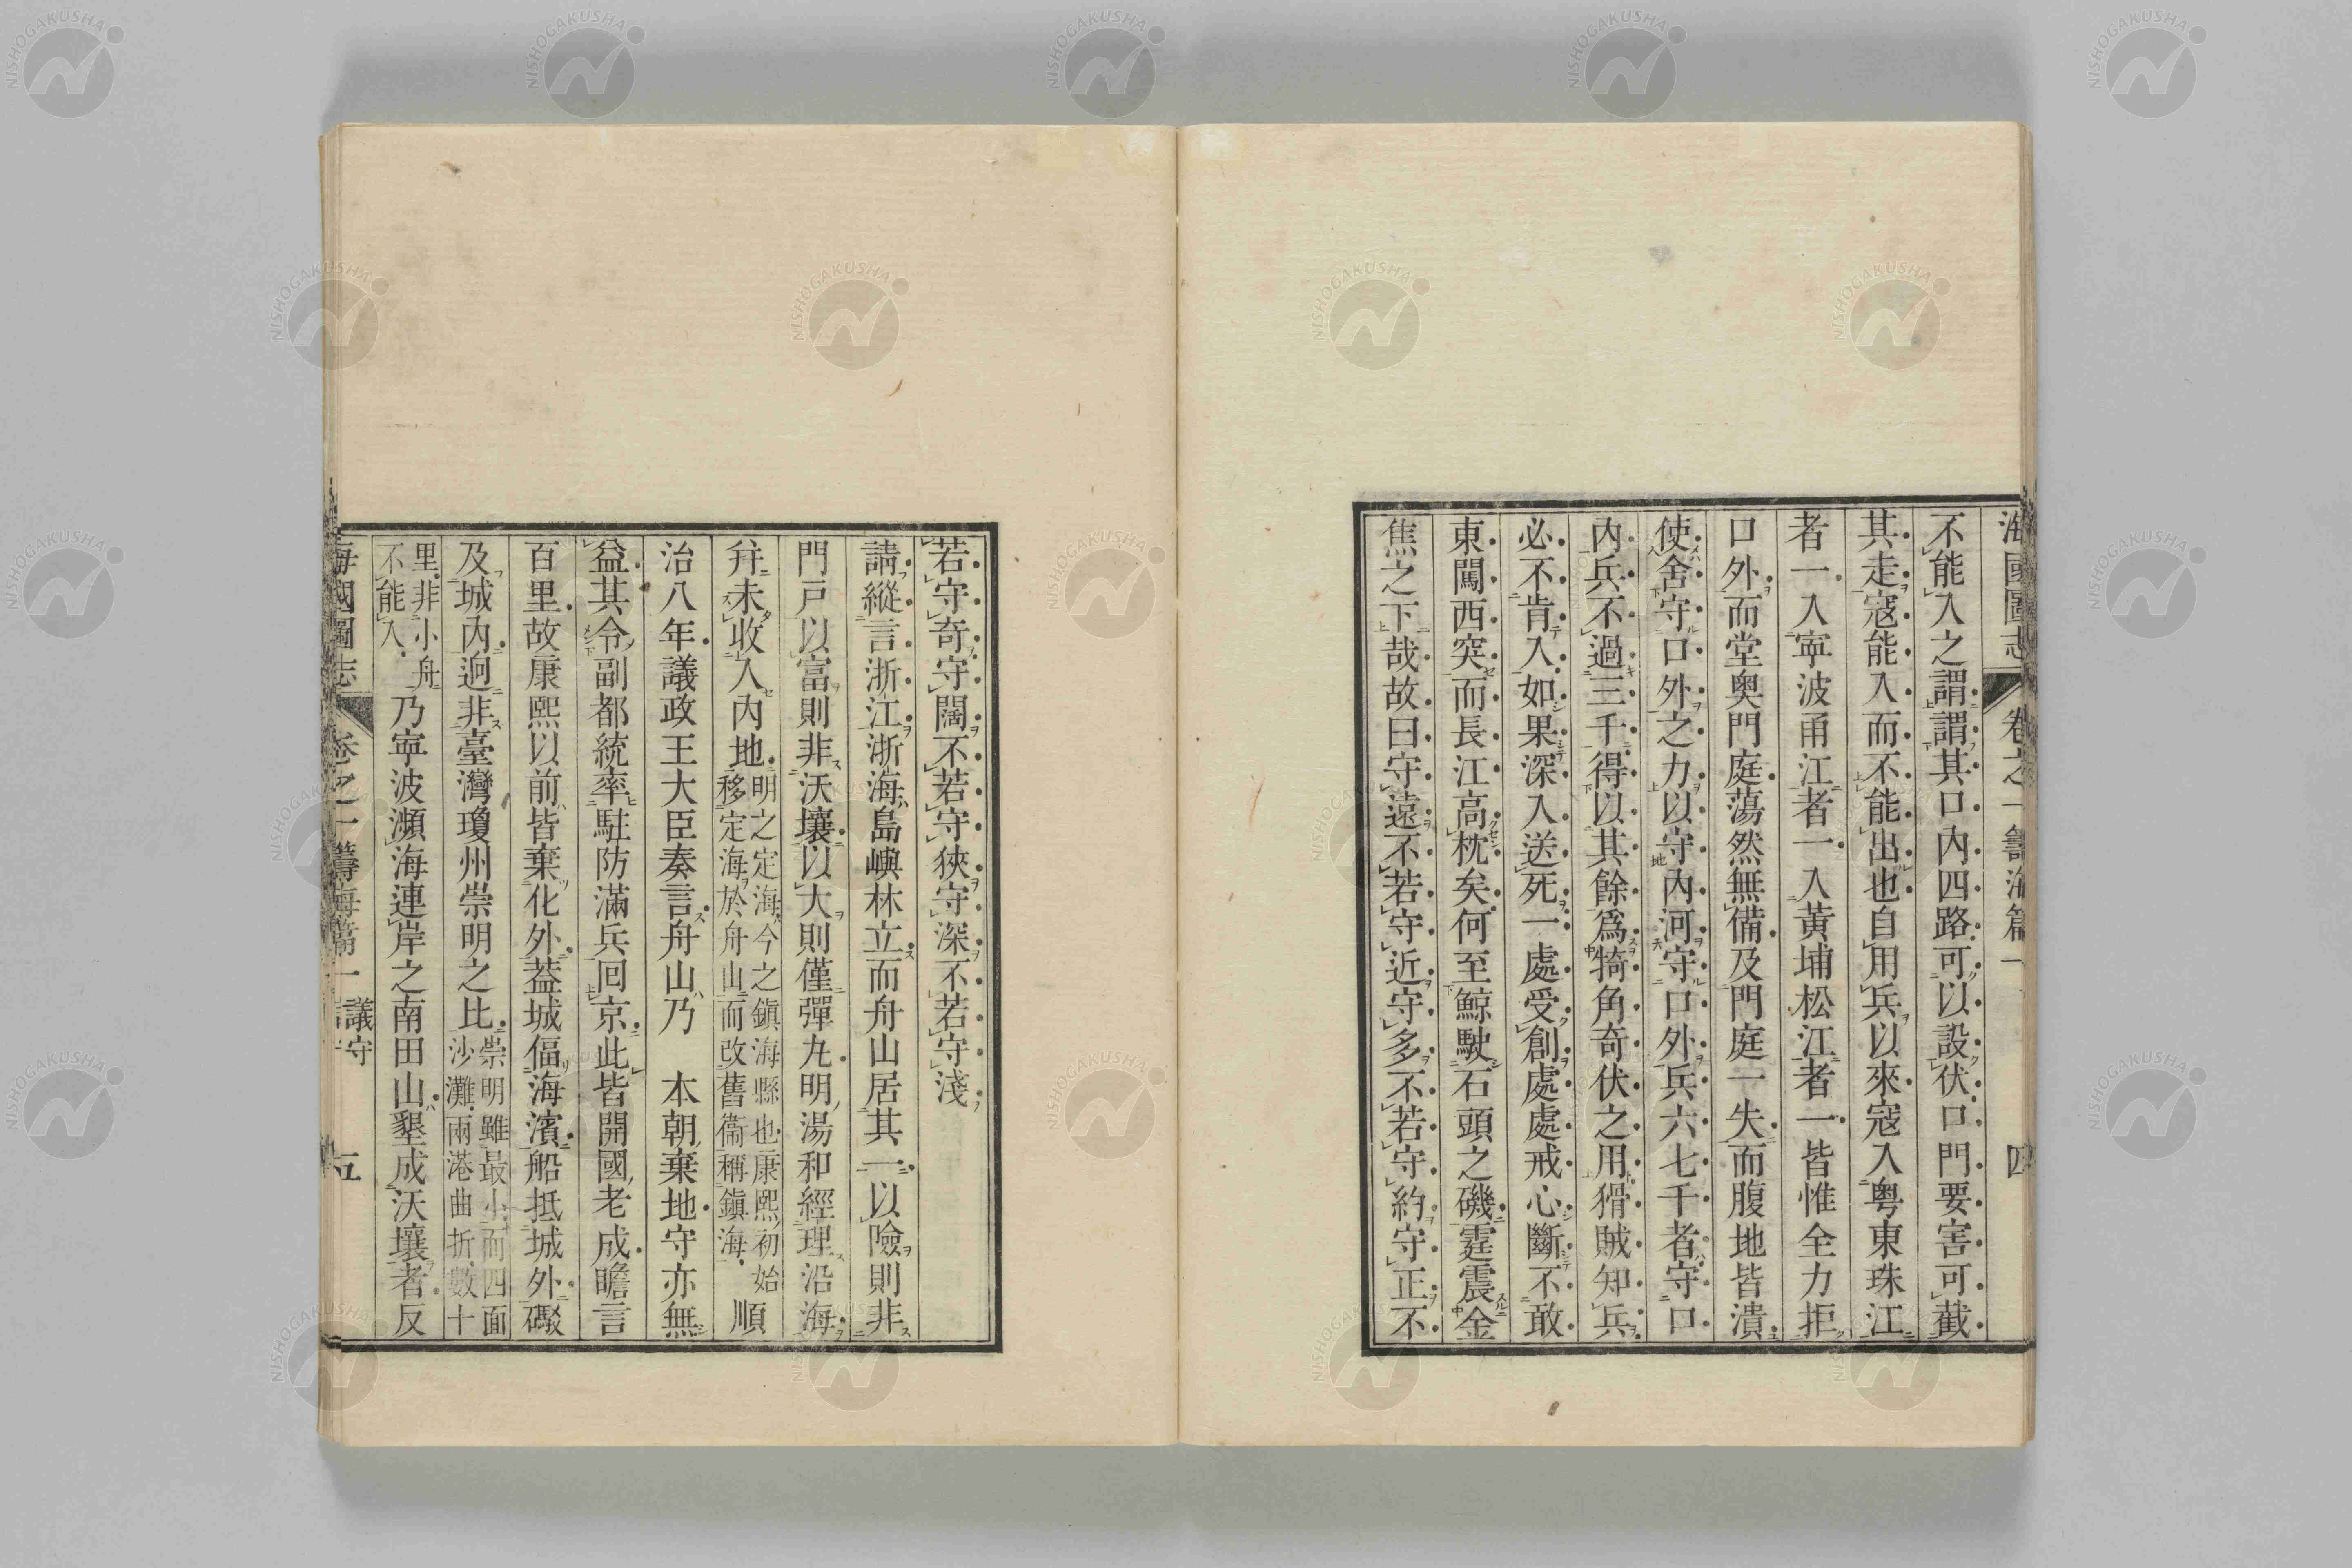 海國圖志 卷之一 籌海篇一 四
不能入之謂謂其口內四路可以設伏口門要害可截
其走寇能入而不能出也自用兵以來寇入粵東珠江
者一入寜波甬江者一入黃埔松江者一皆惟全力拒
口外而堂奧門庭蕩然無備及門庭一失而腹地皆潰
使舍守口外之力以守內河守口外兵六七千者守口
內兵不過三千得以其餘爲犄角奇伏之用猾賊知兵
必不肯入如果深入送死一處受創處處戒心斷不敢
東闖西突而長江高枕矣何至鯨駛石頭之磯霆震金
焦之下哉故曰守遠不若守近守多不若守約守正不
若守奇守闊不若守狹守深不若守淺
請縱言浙江浙海島嶼林立而舟山居其一以險則非
門戸以富則非沃壤以大則僅彈丸明湯和經理沿海
幷未收入內地明之定海今之鎮海縣也康熙初始移定海於舟山而改舊衞稱鎮海順
治八年議政王大臣奏言舟山乃 本朝棄地守亦無
益其令副都統率駐防滿兵回京此皆開國老成瞻言
百里故康熙以前皆棄化外葢城偪海濱船抵城外礮
及城內迥非臺灣瓊州崇明之比崇明雖最小而四面沙灘兩港曲折數十
里非小舟不能入乃寜波瀕海連岸之南田山墾成沃壤者反
海國圖志 卷之一 籌海篇一 議守 五